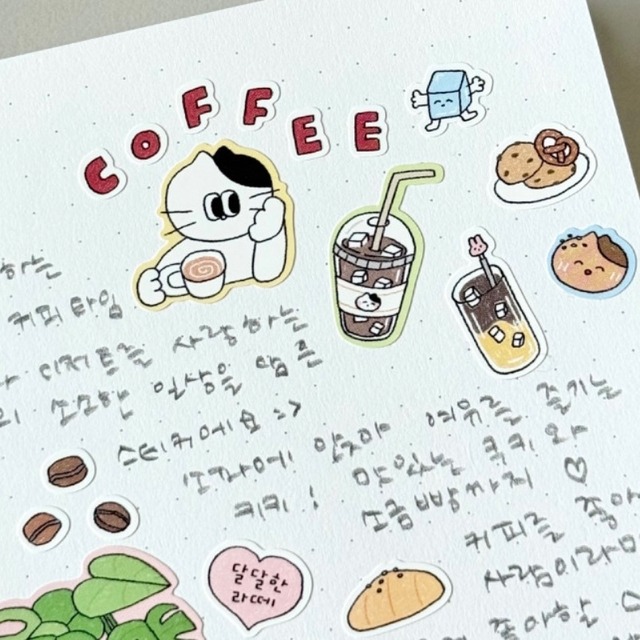 COFFEE
하는
커피타임
디저트를 사랑하는
소소한 일상을 담은
스티커에요 :>
소파에 앉아 여유를 즐기는
키키! 맛있는 쿠키와
소금빵까지 ♡
커피를 좋아
사람이라면
좋아할
달달한
라떼